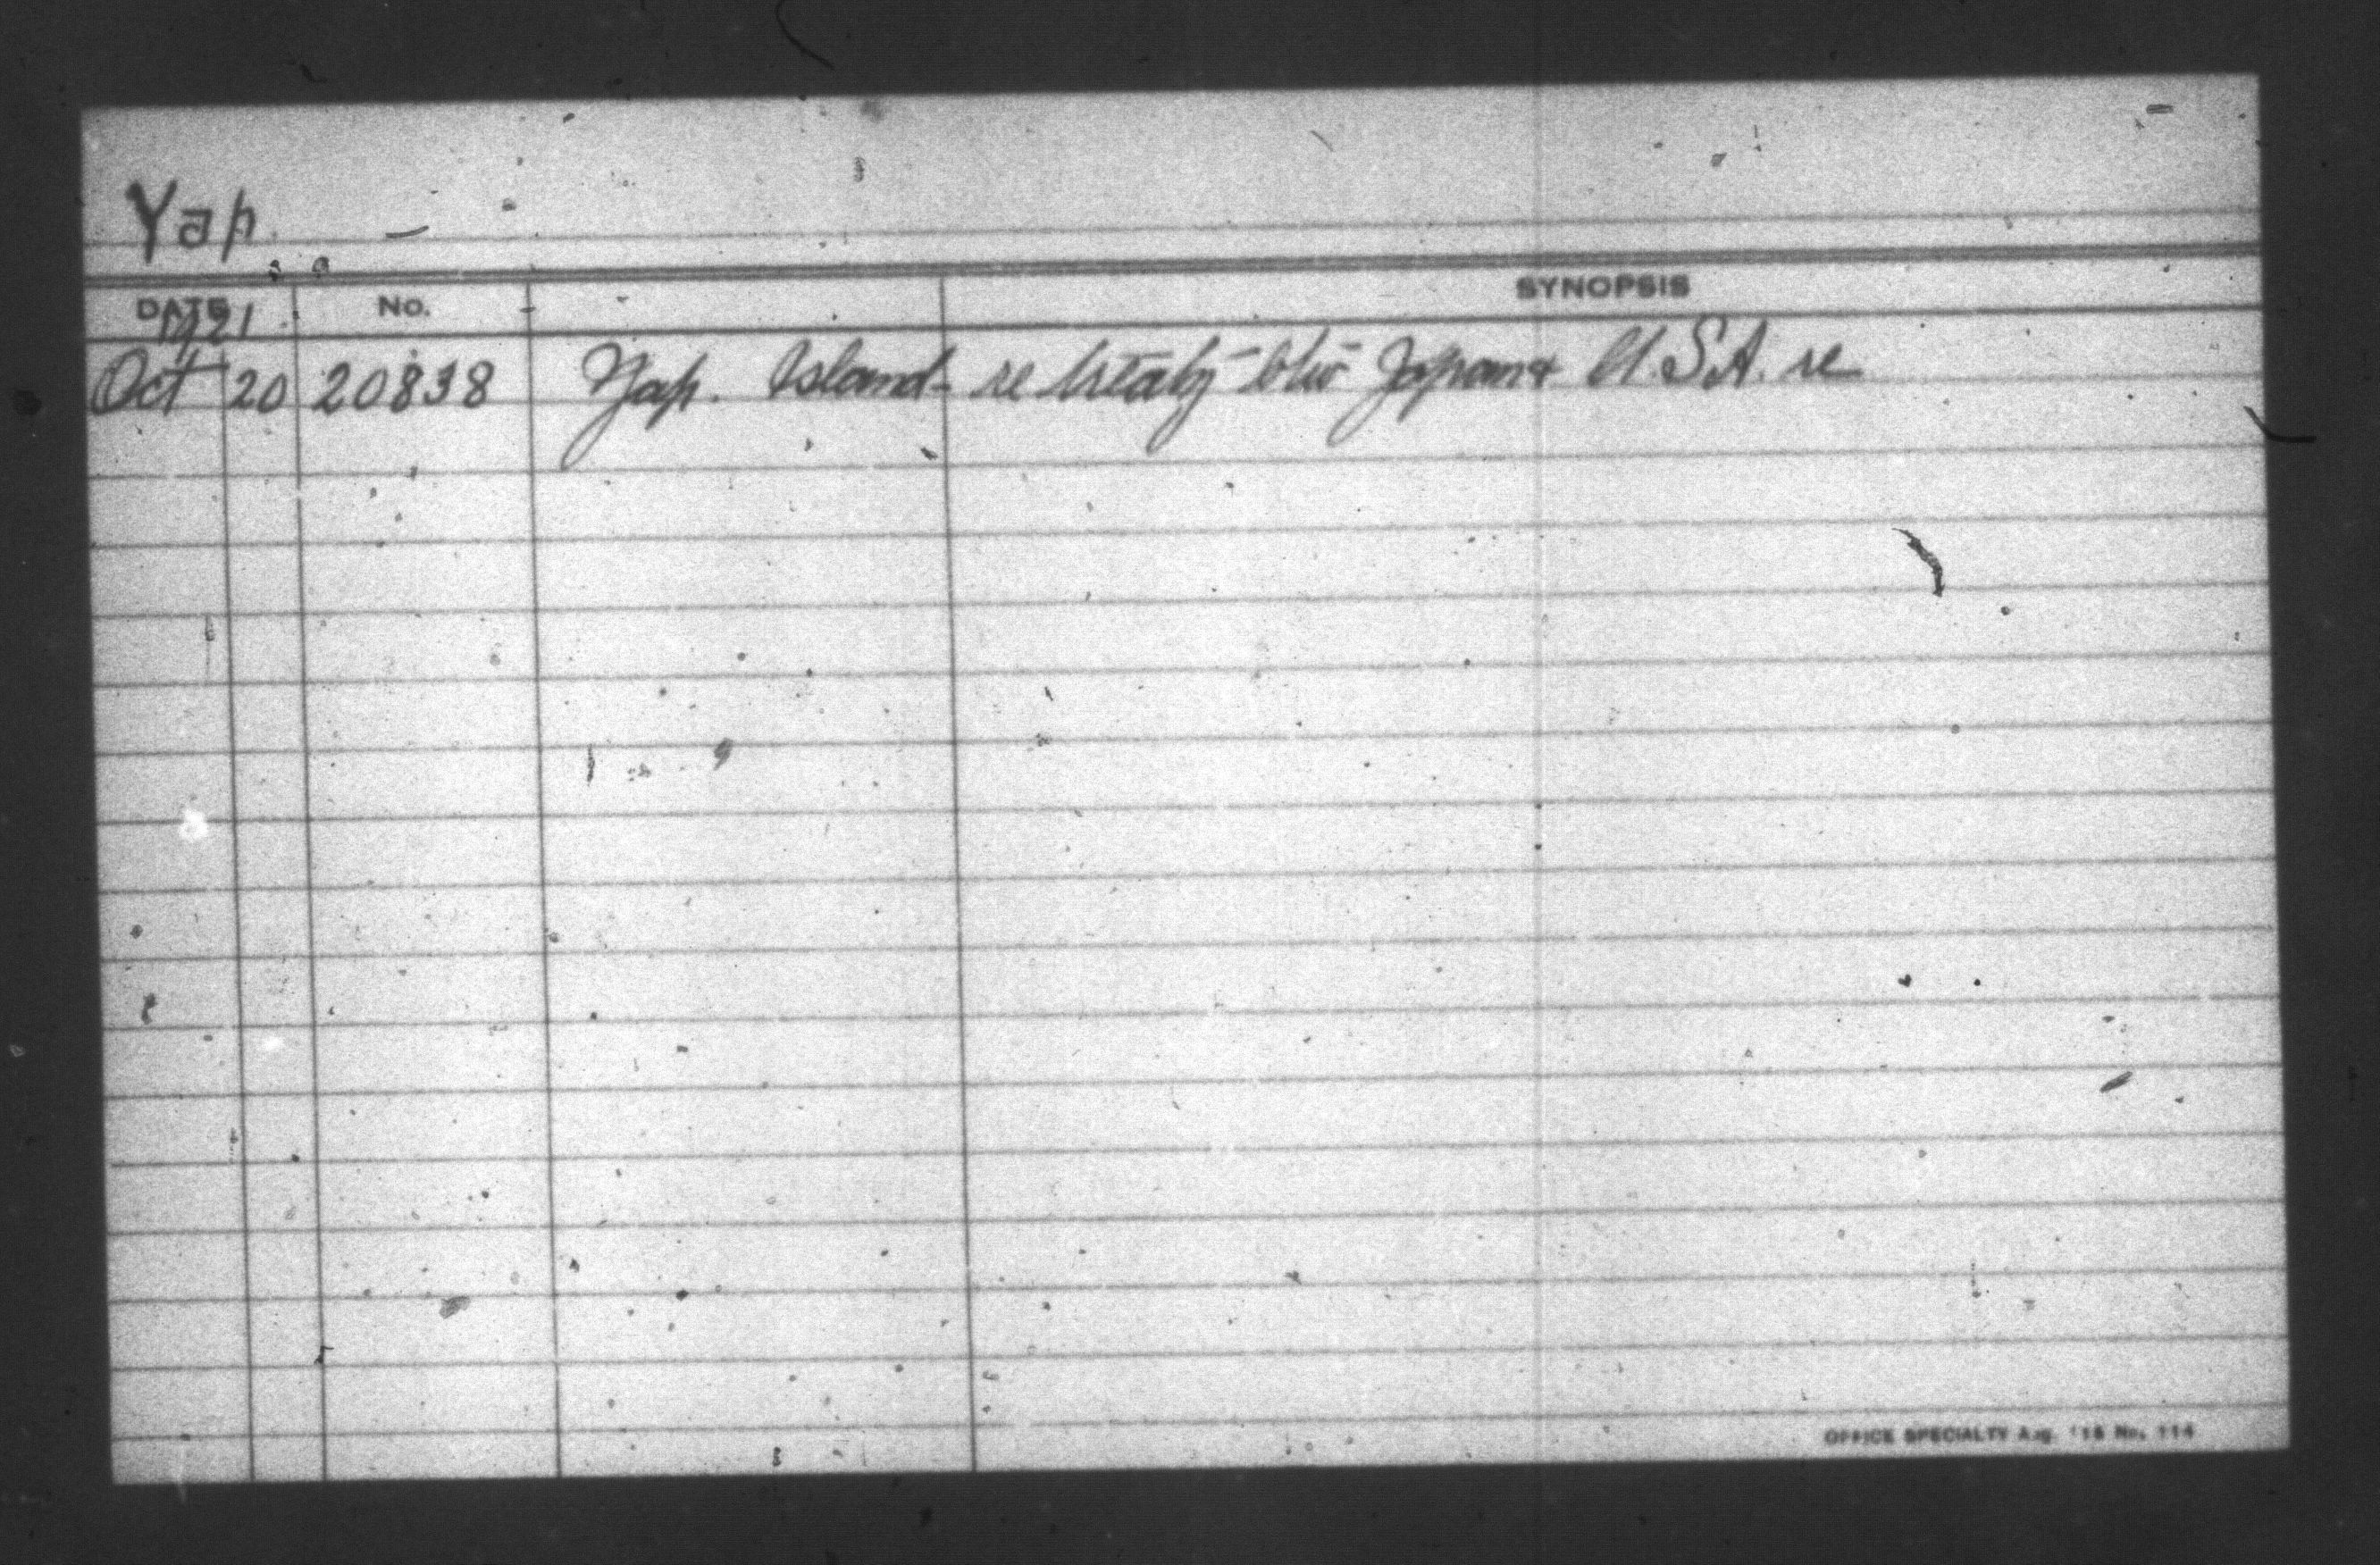 Yap.
DATE No. SYNOPSIS
1921
Oct 20 20838 Yap. Island - re treaty btw Japan & U.S.A. re
OFFICE SPECIALTY Aug. '18 No. 114